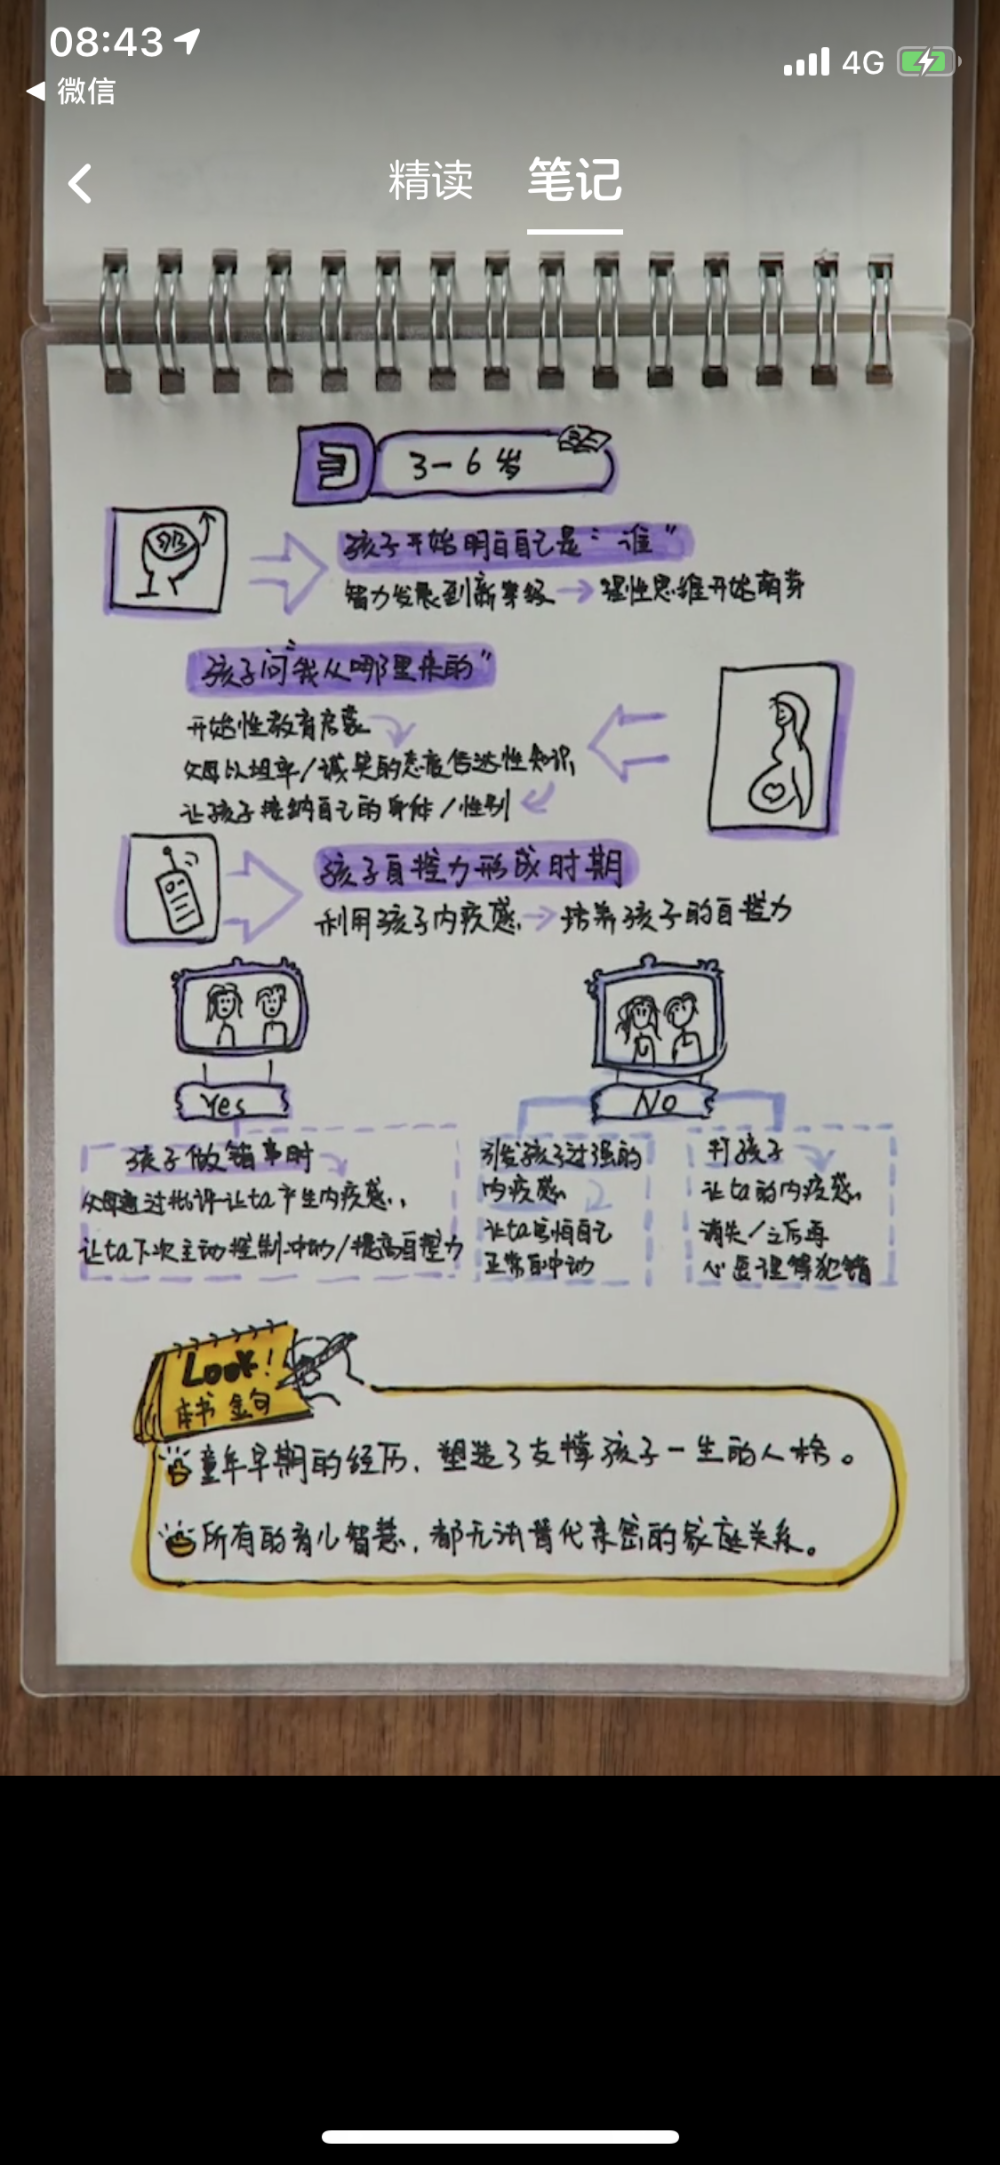 08:43
4G
微信
精读 笔记
3
3-6岁
孩子开始明白自己是“谁”
智力发展到新等级→理性思维开始萌芽
孩子问“我从哪里来的”
开始性教育启蒙
父母以坦率/诚实的态度传达性知识
让孩子接纳自己的身体/性别
孩子自控力形成时期
利用孩子内疚感→培养孩子的自控力
Yes
No
孩子做错事时
父母通过批评让ta产生内疚感,
让ta下次主动控制冲动/提高自控力
引发孩子过强的
内疚感
让ta害怕自己
正常的冲动
打孩子
让ta的内疚感
消失/之后再
心安理得犯错
Look!
本书金句
童年早期的经历,塑造了支撑孩子一生的人格。
所有的育儿智慧,都无法替代亲密的家庭关系。